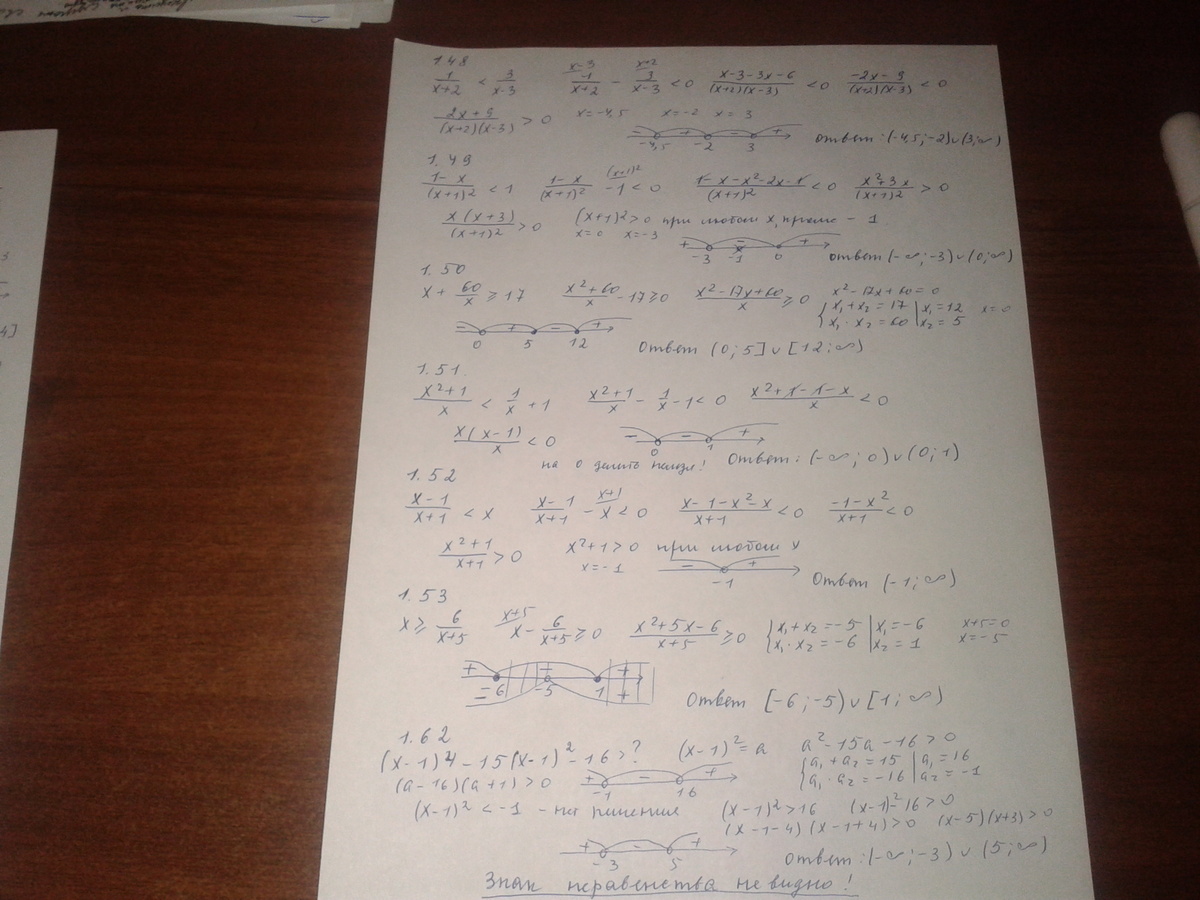 1.48
1/(x+2) < 3/(x-3)   x-3 1/(x+2) - x+2 3/(x-3) < 0   (x-3-3x-6)/((x+2)(x-3)) < 0   (-2x-9)/((x+2)(x-3)) < 0
(2x+9)/((x+2)(x-3)) > 0   x=-4,5   x=-2   x=3
- + - +
-4,5 -2 3   ответ: (-4,5;-2)∪(3;∞)
1.49
(1-x)/(x+1)² < 1   (1-x)/(x+1)² - (x+1)² 1 < 0   (1-x-x²-2x-1)/(x+1)² < 0   (x²+3x)/(x+1)² > 0
x(x+3)/(x+1)² > 0   (x+1)²>0 при любом x, кроме -1
x=0   x=-3
+ - +
-3 -1 0   ответ (-∞;-3)∪(0;∞)
1.50
x + 60/x ≥ 17   (x²+60)/x - 17 ≥ 0   (x²-17x+60)/x ≥ 0   x²-17x+60=0
{x₁+x₂=17 | x₁=12   x=0
x₁·x₂=60 | x₂=5
- + - +
0 5 12   Ответ (0;5]∪[12;∞)
1.51.
(x²+1)/x < 1/x + 1   (x²+1)/x - 1/x - 1 < 0   (x²+1-1-x)/x < 0
x(x-1)/x < 0   - - +
0 1
на 0 делить нельзя!   Ответ: (-∞;0)∪(0;1)
1.52
(x-1)/(x+1) < x   (x-1)/(x+1) - x+1 x < 0   (x-1-x²-x)/(x+1) < 0   (-1-x²)/(x+1) < 0
(x²+1)/(x+1) > 0   x²+1>0 при любом x
x=-1   - +
-1   Ответ (-1;∞)
1.53
x ≥ 6/(x+5)   x+5 x - 6/(x+5) ≥ 0   (x²+5x-6)/(x+5) ≥ 0   {x₁+x₂=-5 | x₁=-6   x+5=0
x₁·x₂=-6 | x₂=1   x=-5
+ - +
-6 -5 1
- +   Ответ [-6;-5)∪[1;∞)
1.62
(x-1)⁴-15(x-1)²-16>?   (x-1)²=a   a²-15a-16>0
(a-16)(a+1)>0   + - +   {a₁+a₂=15 | a₁=16
-1 16   a₁·a₂=-16 | a₂=-1
(x-1)²<-1 - нет решения   (x-1)²>16   (x-1)²-16>0
(x-1-4)(x-1+4)>0   (x-5)(x+3)>0
+ - +
-3 5   ответ: (-∞;-3)∪(5;∞)
Знак неравенства не видно!